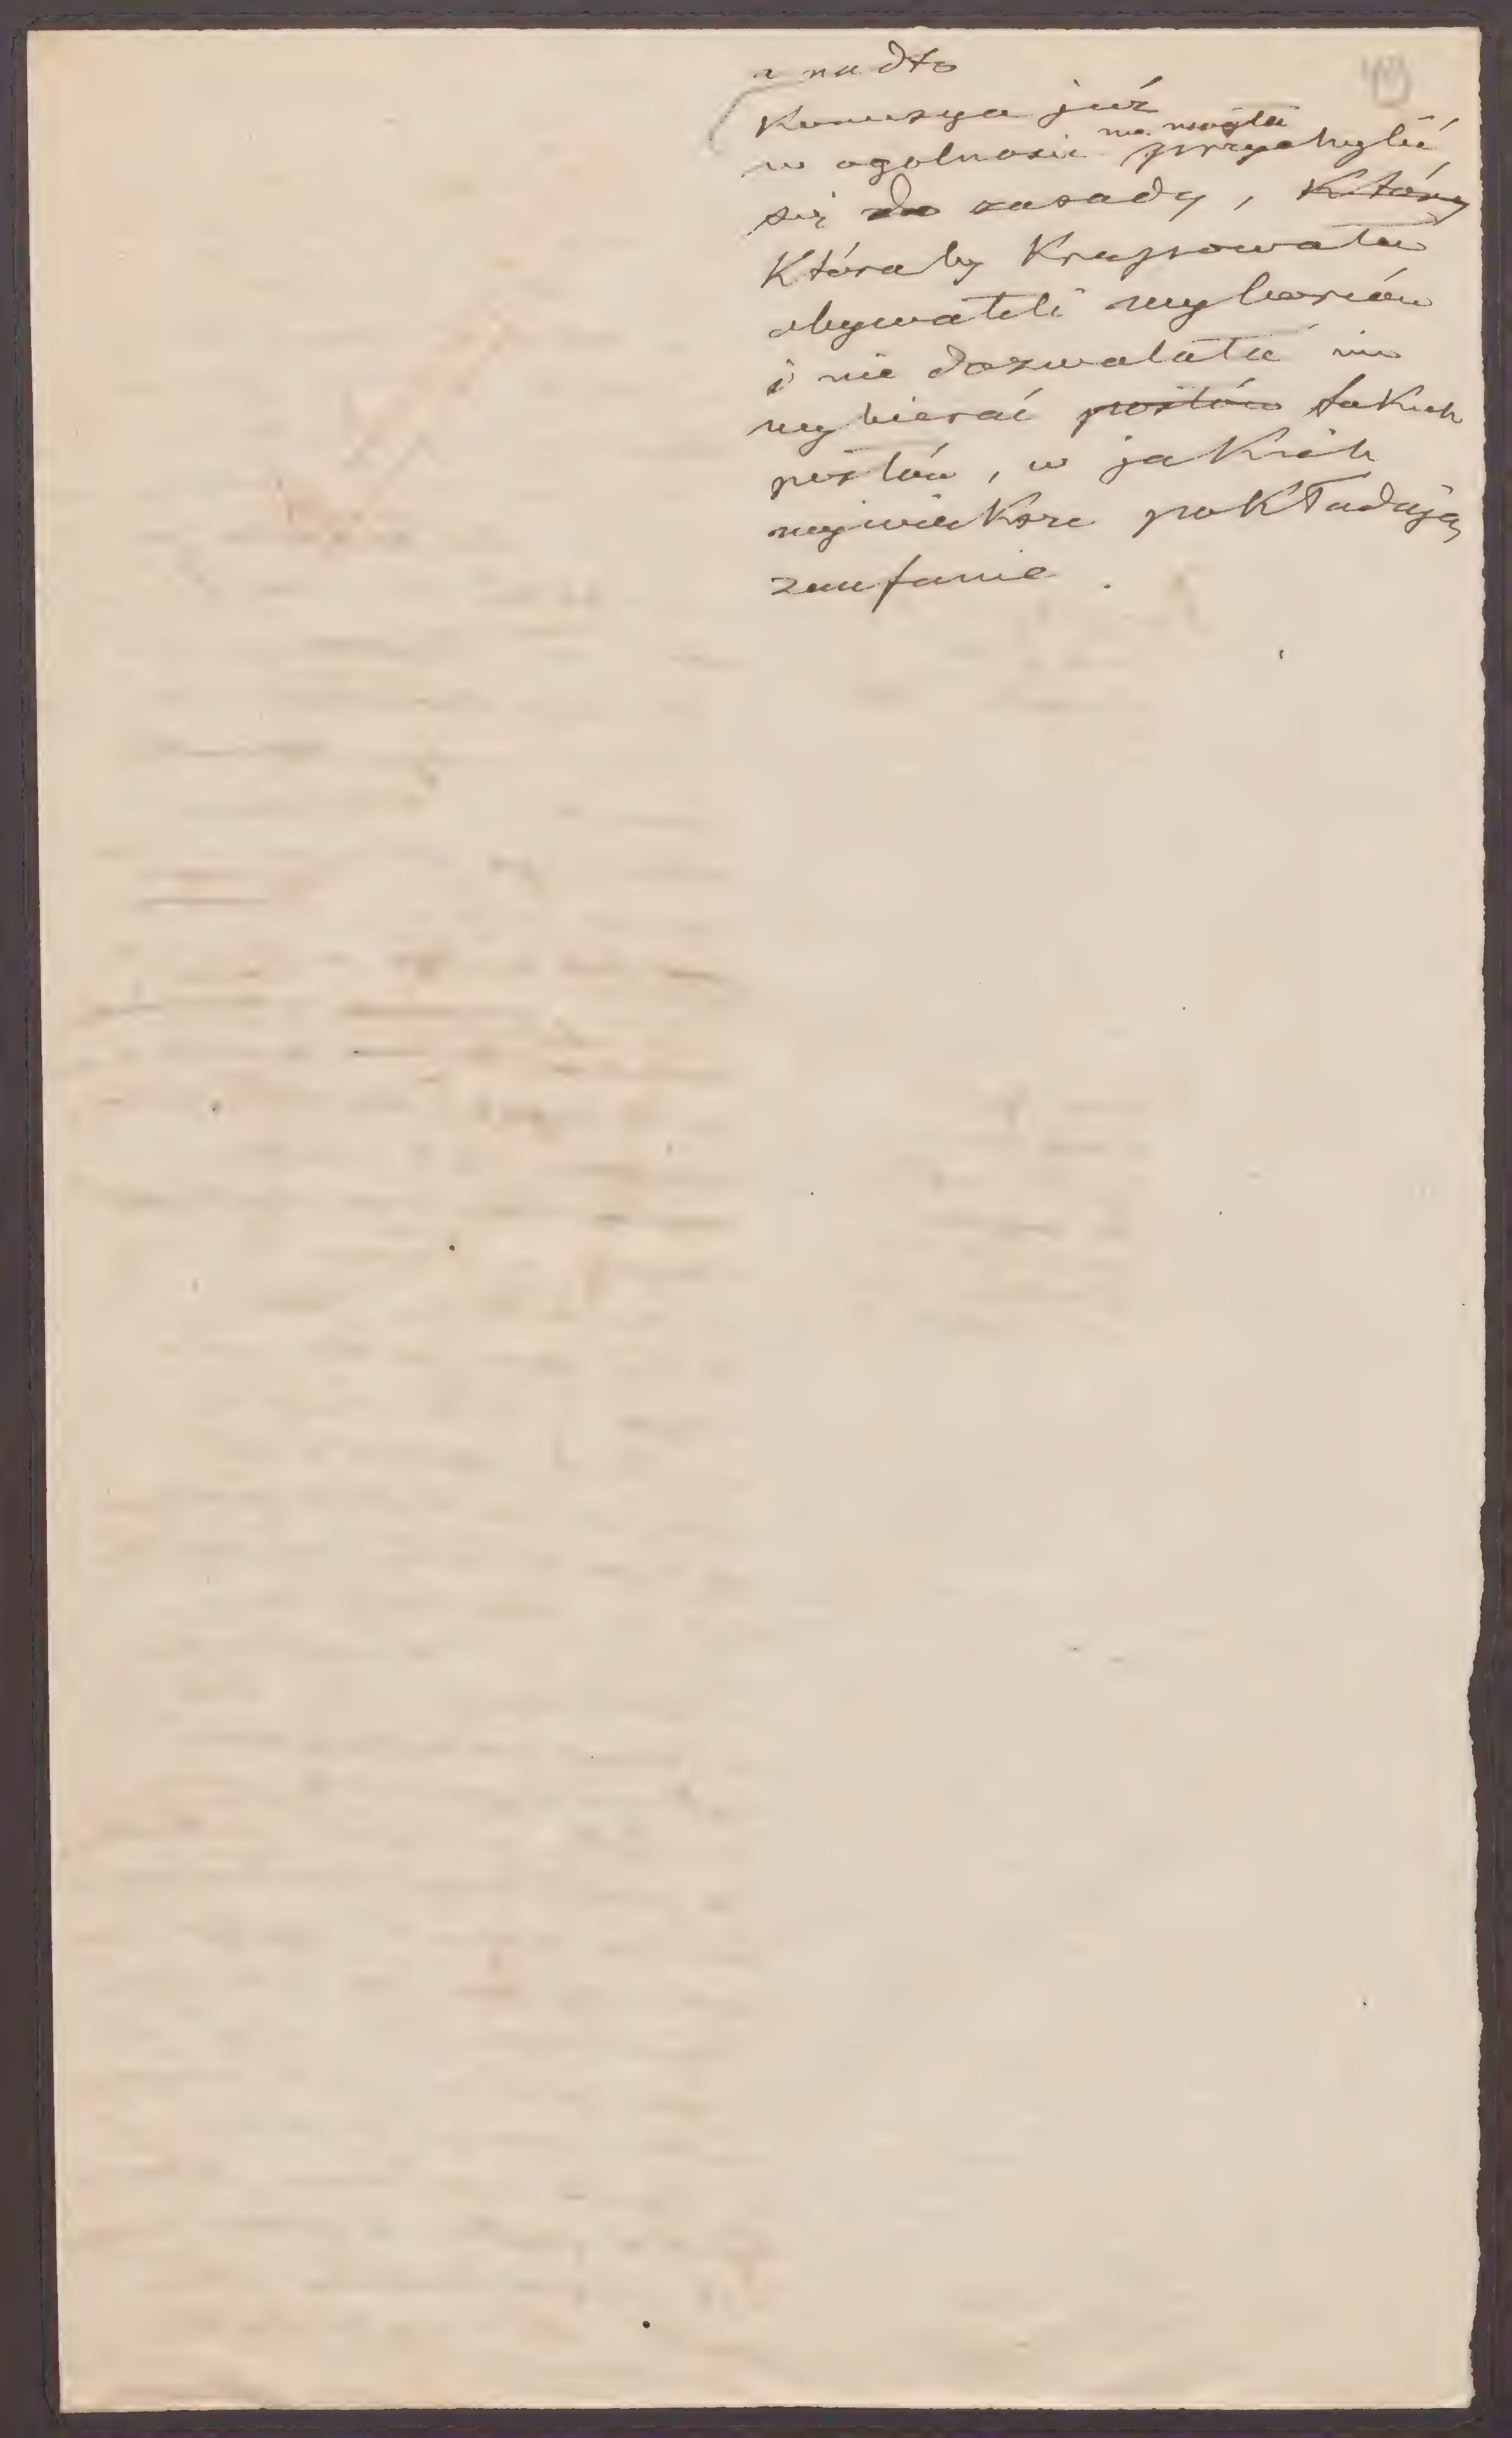 a nadto
Komisya już
w ogolności nie mogła przychylić
się do zasady, który
któraby krępowała
obywateli wyborców
i nie dozwalała im
wybierać posłów takich
posłów, w jakich
największe pokładają
zaufanie.